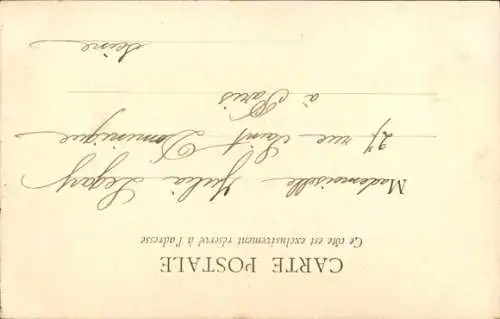 CARTE POSTALE
Ce côté est exclusivement réservé à l'adresse
Mademoiselle Julia Legay
27 rue Saint Dominique
à Paris
Seine